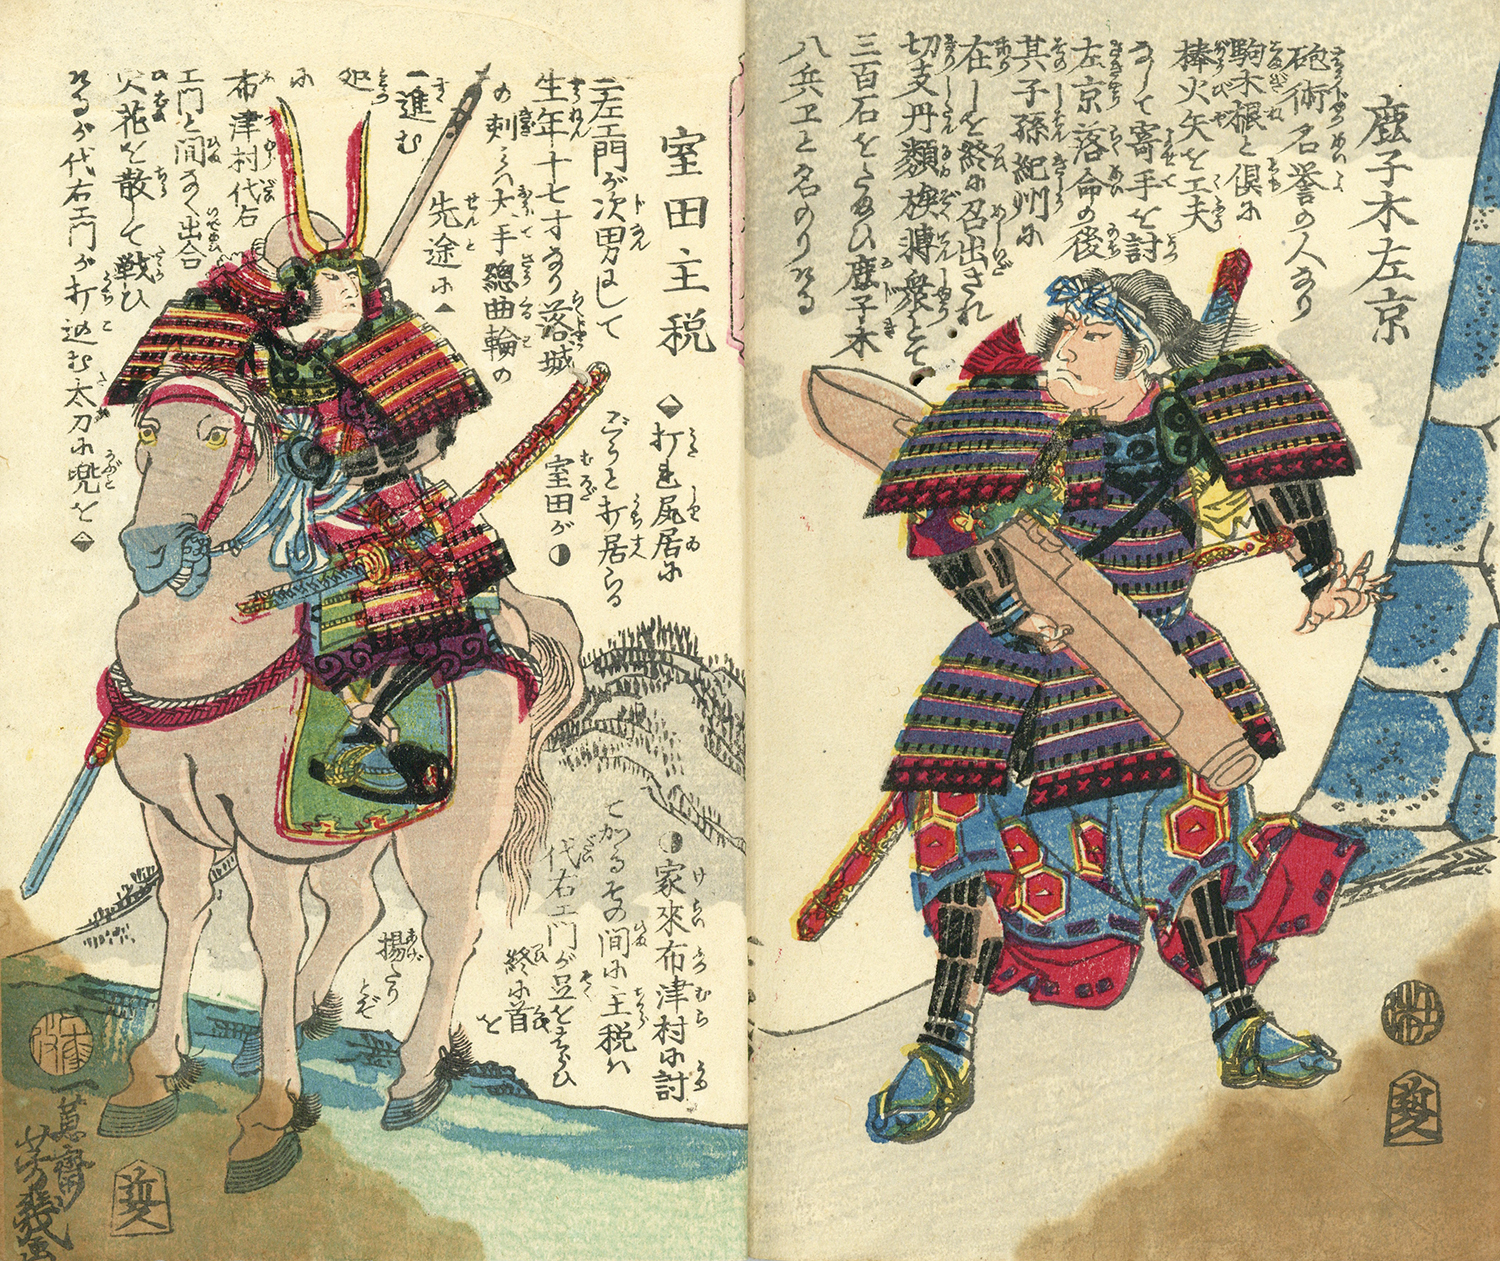 鹿子木左京
砲術名誉の人なり
駒木根と倶に
棒火矢を工夫
なして寄手を討
左京落命の後
其子孫紀州に
在しを終に召出され
切支丹類族溥衆とて
三百石をたまひ鹿子木
八兵卫と名のりける
室田主税
二左エ門が次男にして
生年十七才なり落城
の刻には大手總曲輪の
先途に▲
▲進む
処
に
布津村代右
エ門と間なく出合
火花を散して戦ひ
けるが代右エ門が打込む太刀に兜を◆
◆打れ尻居に
どうと打居らる
室田が◐
◑家來布津村に討
てかゝるその間に主税ハ
代右エ門が足をはらひ
終に首を
揚たりとぞ
一蕙齋
芳幾画